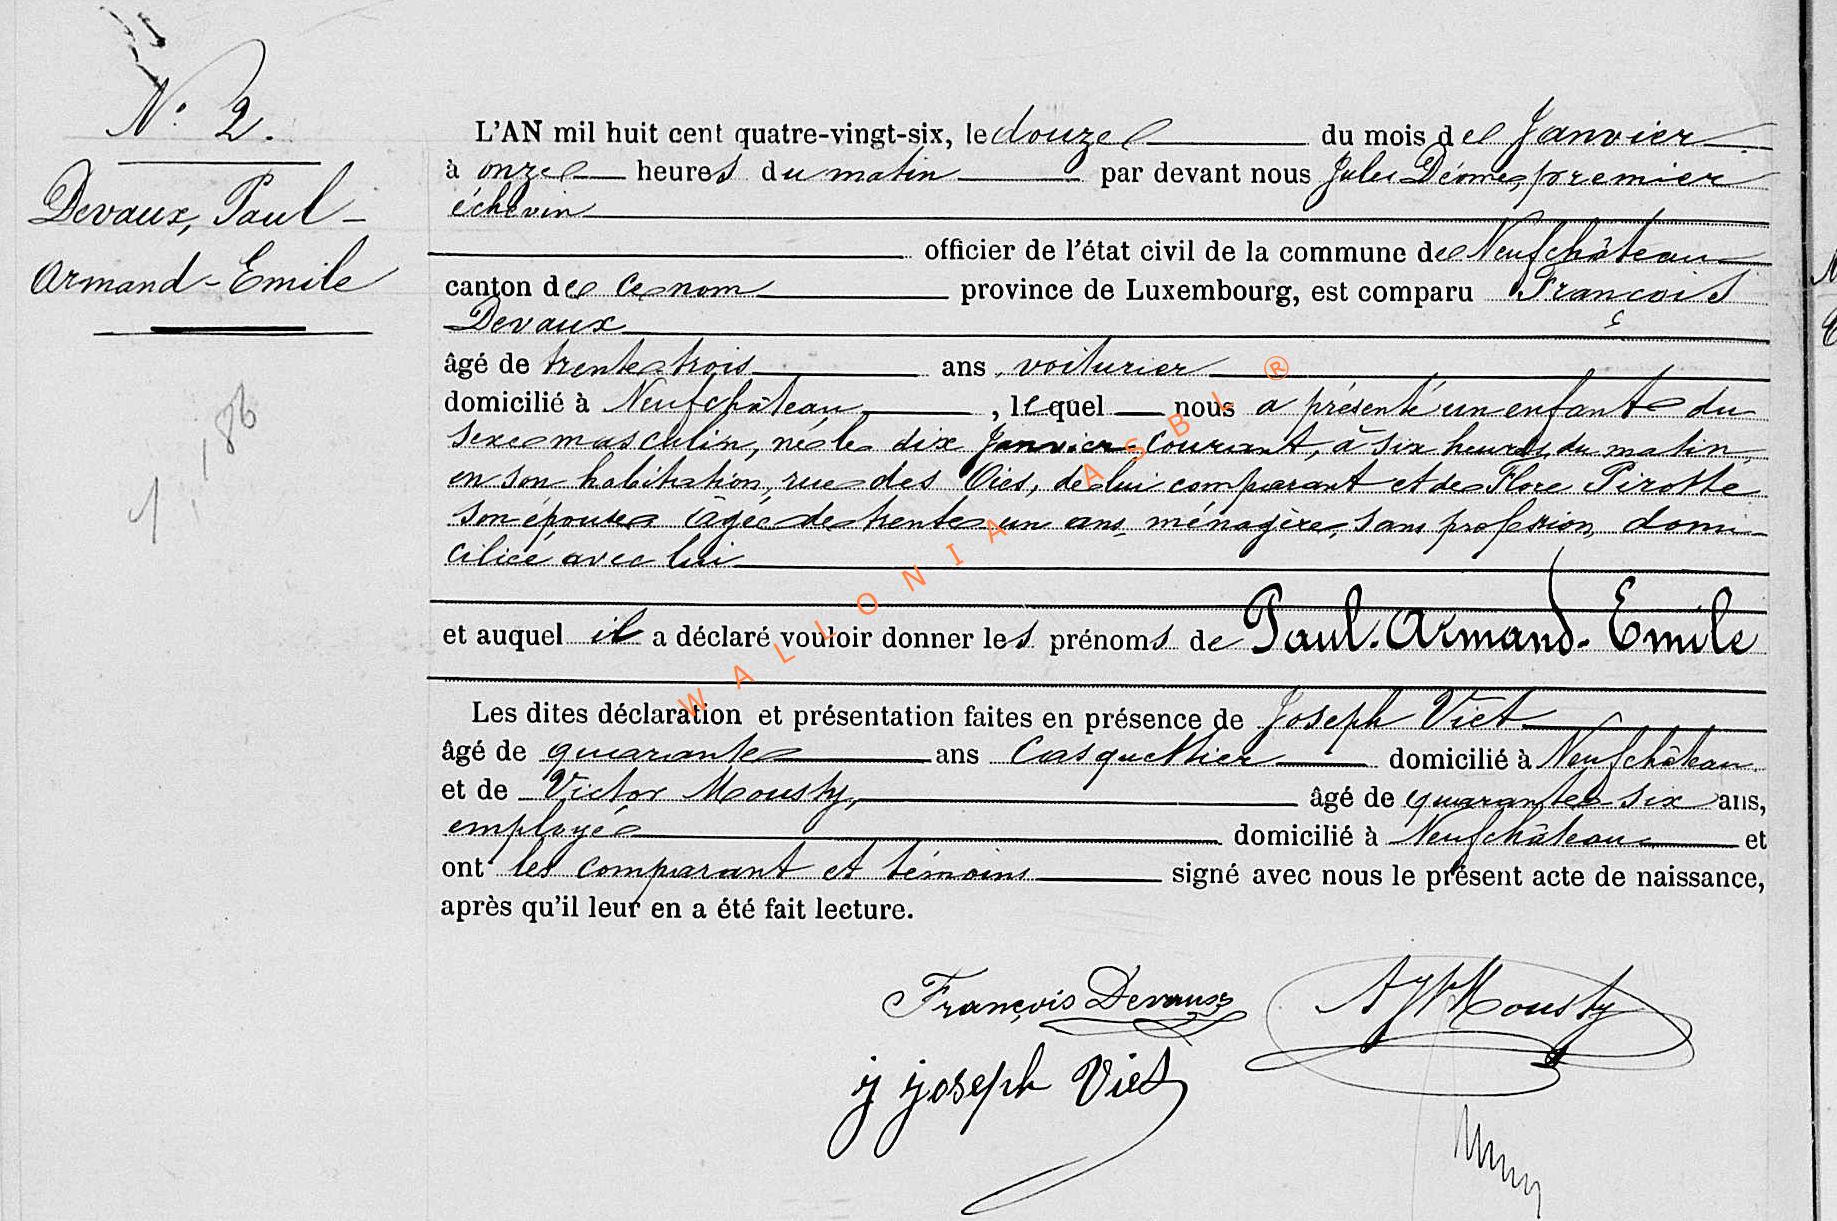 N° 2.
Devaux, Paul-
Armand-Emile
L'AN mil huit cent quatre-vingt-six, le douze du mois de Janvier
à onze heures du matin par devant nous Jules Déome, premier
échevin
officier de l'état civil de la commune de Neufchâteau
canton de ce nom province de Luxembourg, est comparu François
Devaux
âgé de trente-trois ans, voiturier
domicilié à Neufchâteau, lequel nous a présenté un enfant du
sexe masculin, né le dix Janvier courant, à six heures du matin,
en son habitation, rue des Oies, de lui comparant et de Flore Pirotte
son épouse âgée de trente un ans, ménagère, sans profession, domi-
ciliée avec lui
et auquel il a déclaré vouloir donner les prénoms de Paul-Armand-Emile
Les dites déclaration et présentation faites en présence de Joseph Viet
âgé de quarante ans Casquettier domicilié à Neufchâteau
et de Victor Mousty, âgé de quarante six ans,
employé domicilié à Neufchâteau et
ont les comparant et témoins signé avec nous le présent acte de naissance,
après qu'il leur en a été fait lecture.
François Devaux
Mousty
j joseph Viet
WALLONIA ASBL ®